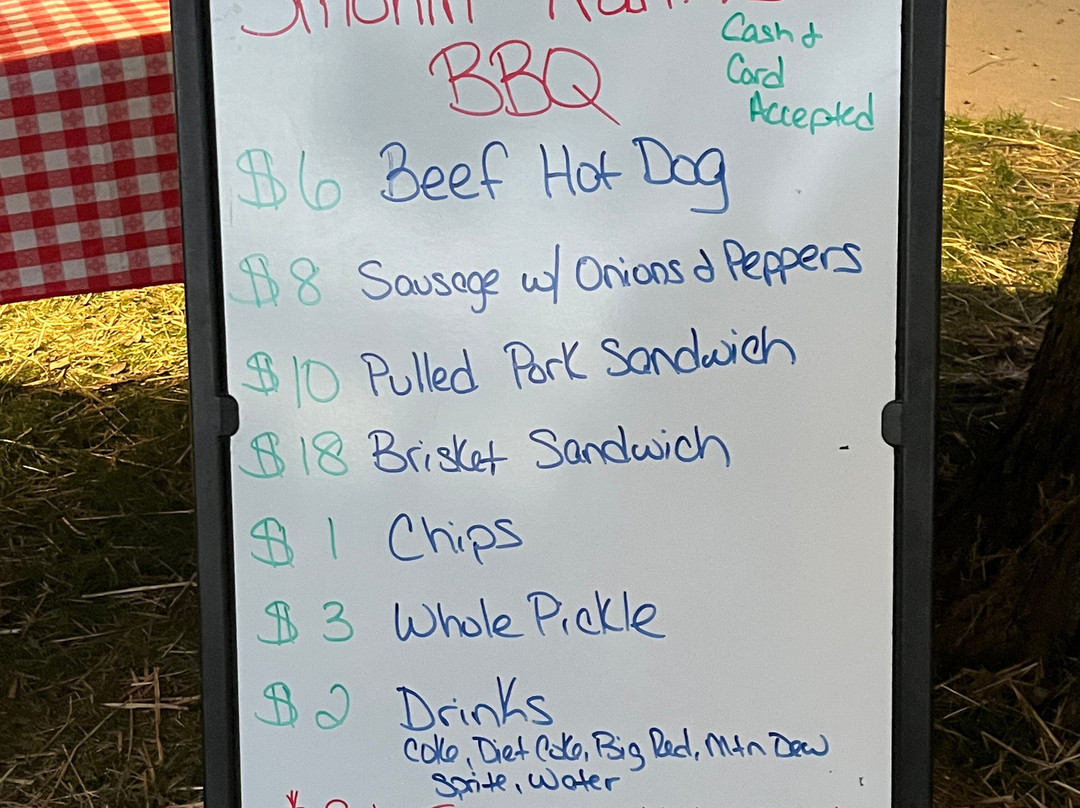 BBQ
Cash &
Card
Accepted
$6 Beef Hot Dog
$8 Sausage w/ Onions & Peppers
$10 Pulled Pork Sandwich
$18 Brisket Sandwich
$1 Chips
$3 Whole Pickle
$2 Drinks
Coke, Diet Coke, Big Red, Mtn Dew
Sprite, Water